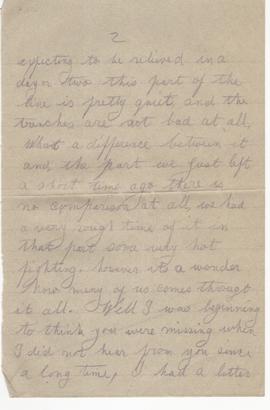 2
expecting to be relived in a
day or two this part of the
line is pretty quiet, and the
trenches are not bad at all,
what a difference between it
and the part we just left
a short time ago there is
no comparison at all we had
a very rough time of it in
that part some very hot
fighting. however its a wonder
how many of us comes through
it all. Well I was beginning
to think you were missing when
I did not hear from you since
a long time, I had a letter